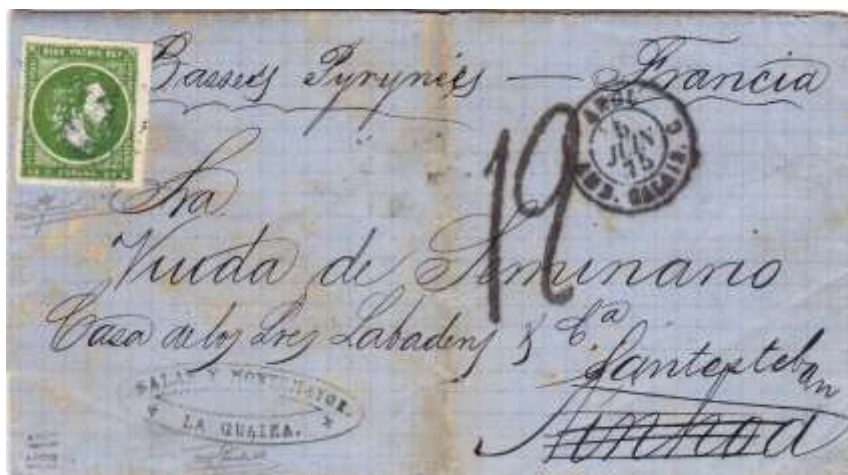 DIOS PATRIA REY
ESPAÑA
Basses Pyrynées — Francia
ANGL.
5
JUIN
75
AMB. CALAIS. C
12
Sra
Viuda de Seminario
Casa de los Sres Labadens & Cª
Santesteban
Ainhoa
SALAS Y MONTEMAYOR.
LA GUAIRA.